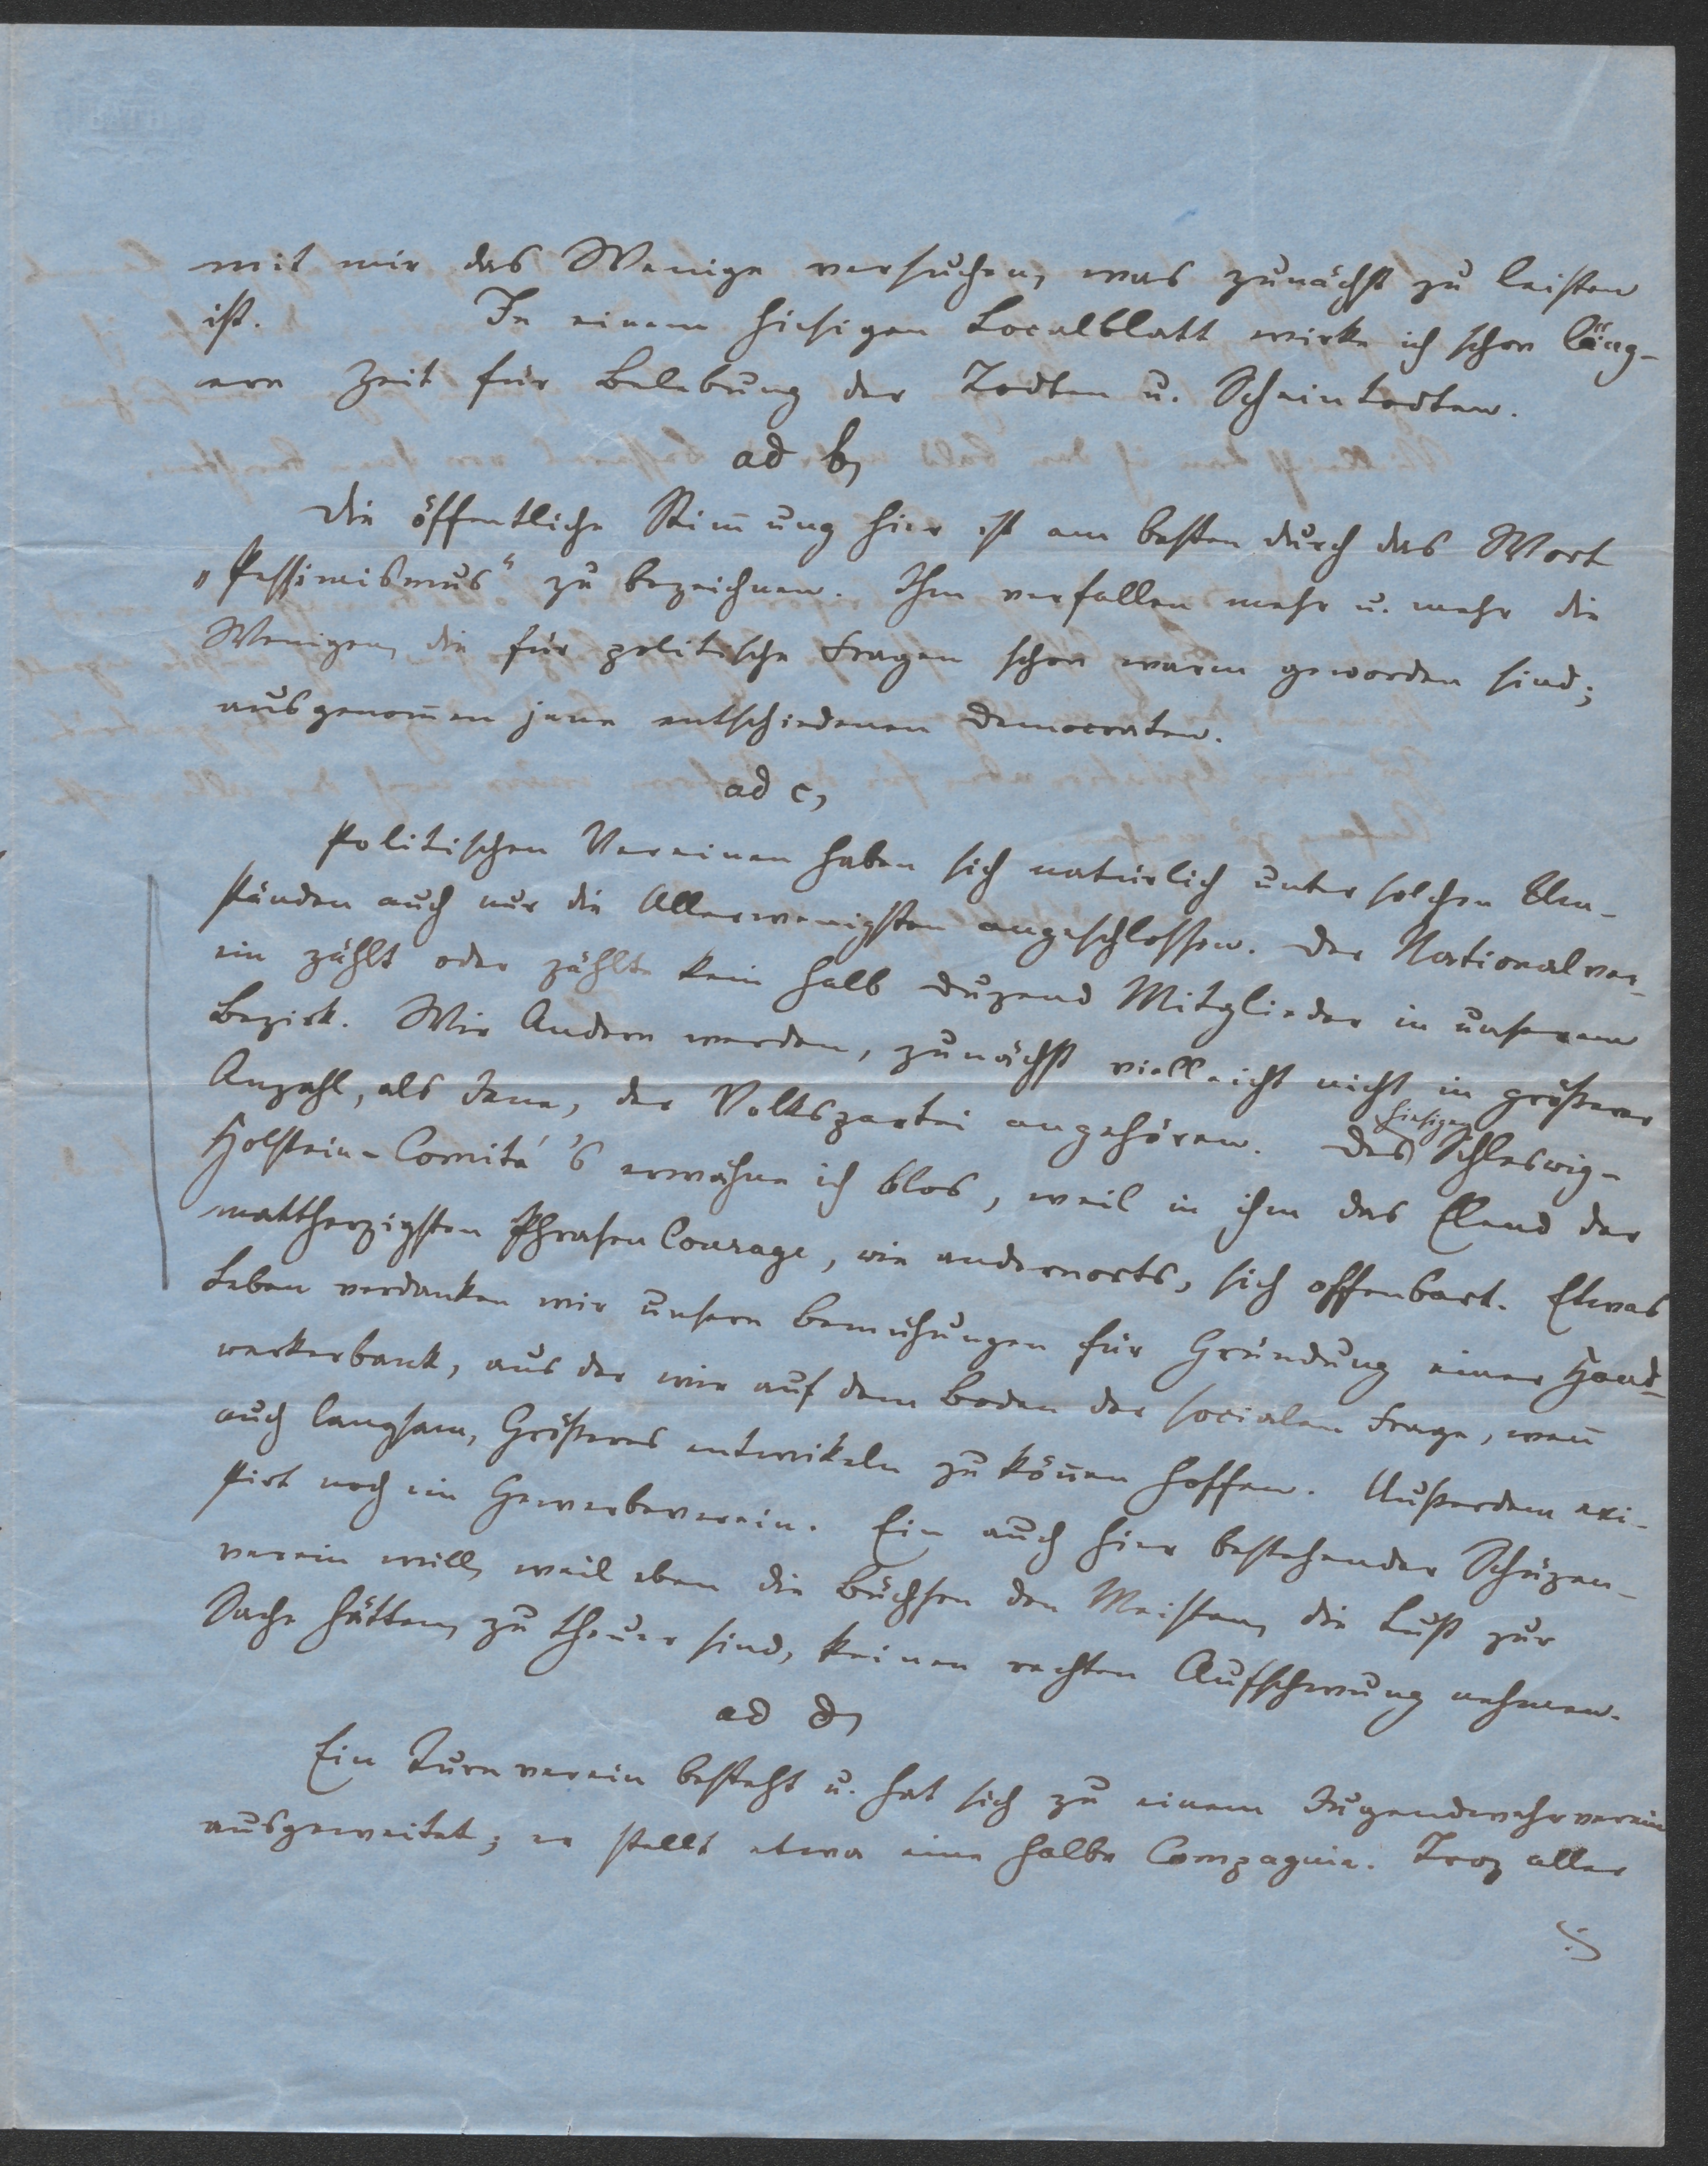 mit mir das Wenige versuchen, was zunächst zu leisten
ist. In einem hiesigen Localblatt wirke ich schon läng-
ere Zeit für Belebung der Todten u. Scheintodten.
ad b,
Die öffentliche Stim̄ung hier ist am besten durch das Wort
„Pessimismus“ zu bezeichnen. Ihm verfallen mehr u. mehr die
Wenigen, die für politische Fragen schon warm geworden sind;
ausgenom̄en jene entschiedenen Democraten.
ad c,
Politischen Vereinen haben sich natürlich unter solchen Um-
ständen auch nur die Allerwenigsten angeschlossen. Der Nationalver-
ein zählt oder zählte kein halb Duzend Mitglieder in unserem
Bezirk. Wir Andern werden, zunächst vielleicht nicht in größerer
Anzahl, als Jene, der Volkspartei angehören. Des hiesigen Schleswig-
Holstein-Comité's erwähne ich blos, weil in ihm das Elend der
mattherzigsten Phrasen Courage, wie andernorts, sich offenbart. Etwas
Leben verdanken wir unsern Bemühungen für Gründung einer Hand-
werkerbank, aus der wir auf dem Boden der socialen Frage, wen̄
auch langsam, Größeres entwikeln zu kön̄en hoffen. Außerdem exi-
stirt noch ein Gewerbeverein. Ein auch hier bestehender Schüzen-
verein will, weil eben die Büchsen den Meisten, die Lust zur
Sache hätten, zu theuer sind, keinen rechten Aufschwung nehmen.
ad d,
Ein Turnverein besteht u. hat sich zu einem Jugendwehrverein
ausgeweitet; er stellt etwa eine halbe Compagnie. Troz aller